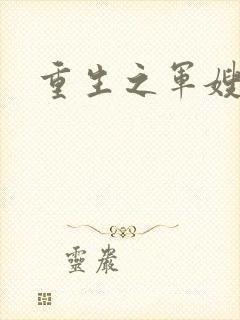 重生之軍嫂
靈嚴